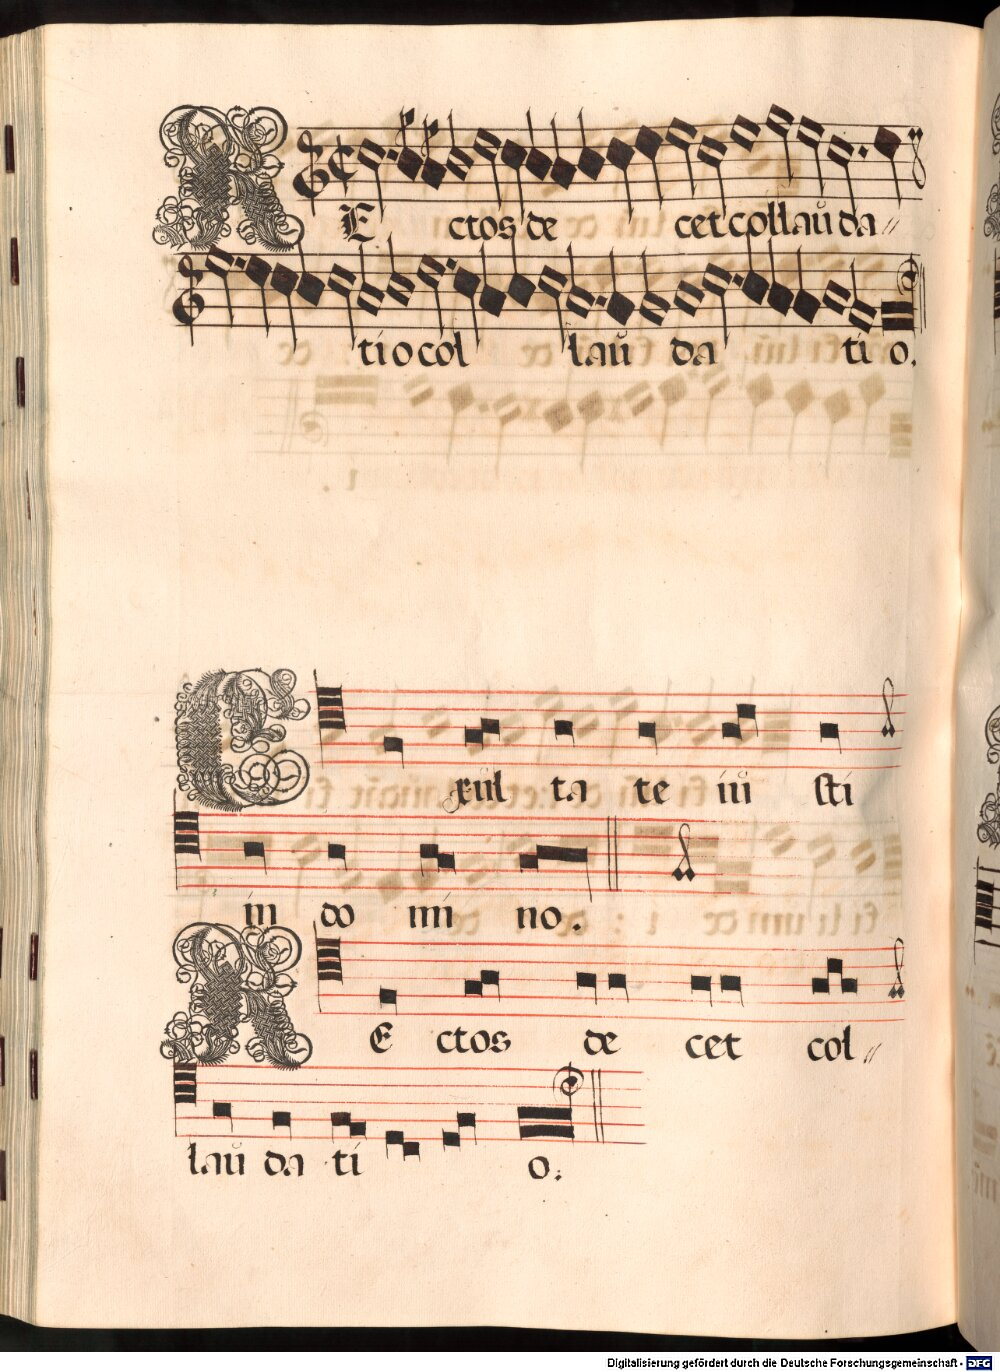 RE ctos de cet collaŭ da〃
ti o col laŭ da ti o.
Exŭl ta te iŭ sti
in do mi no.
RE ctos de cet col〃
laŭ da ti o.
Digitalisierung gefördert durch die Deutsche Forschungsgemeinschaft - DFG